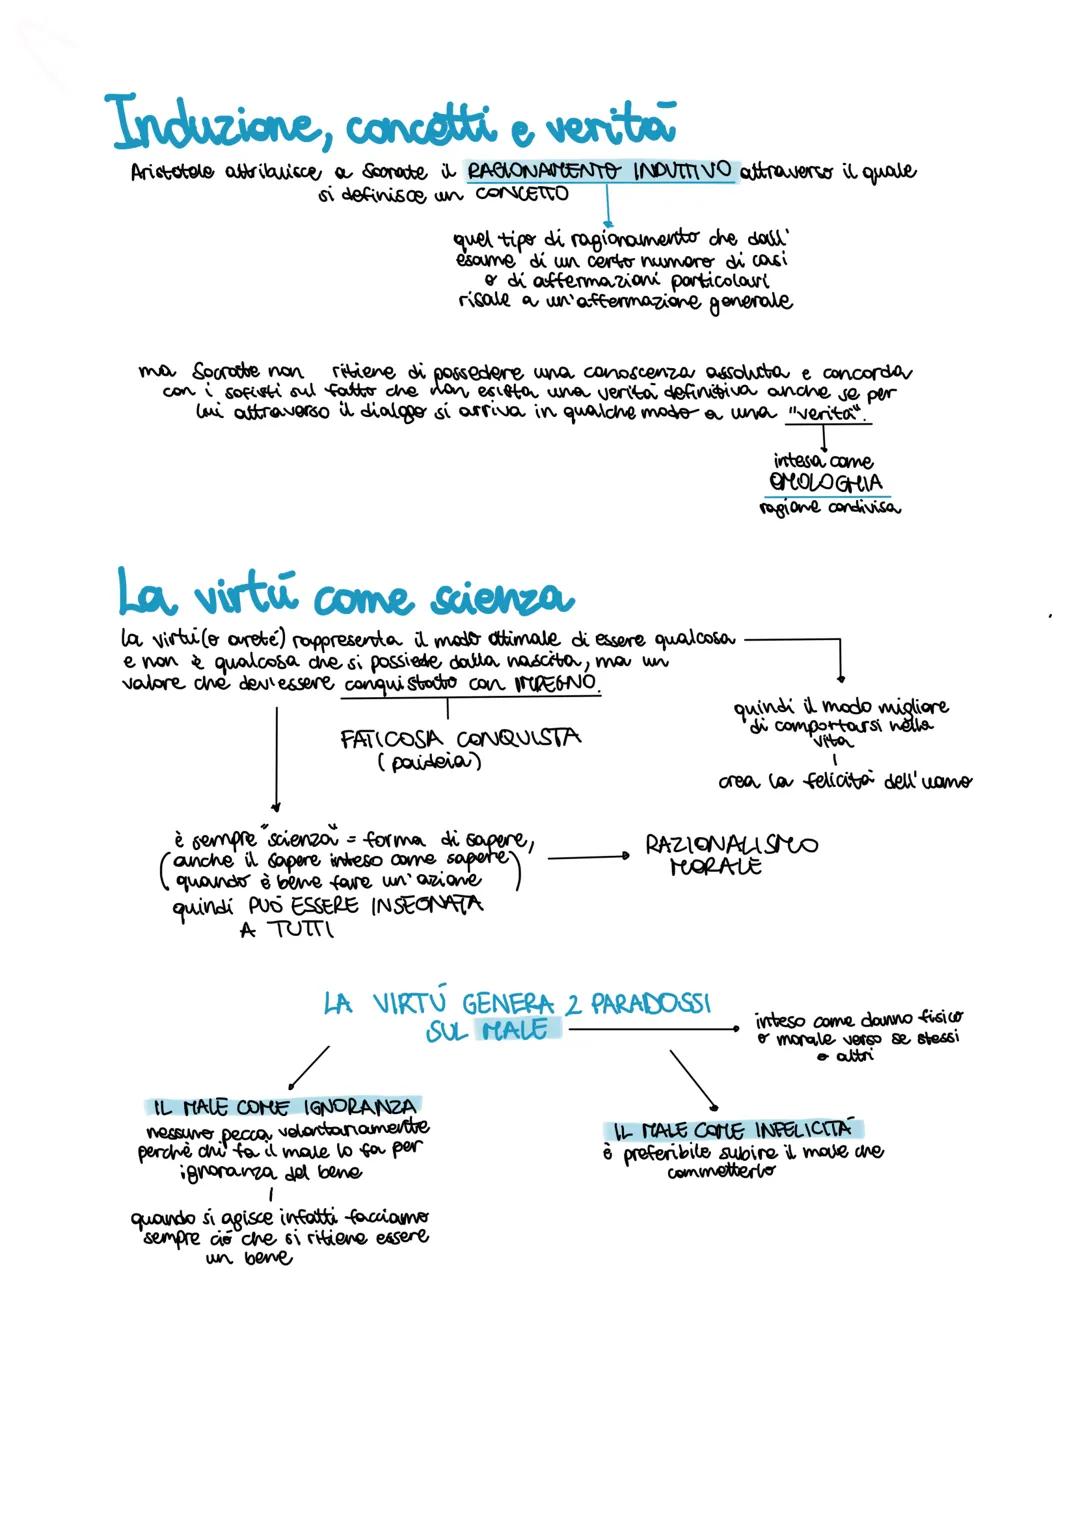 Induzione, concetti e verità
Aristotele attribuisce a Socrate il RAGIONAMENTO INDUTTIVO attraverso il quale
si definisce un CONCETTO
quel tipo di ragionamento che dall'
esame di un certo numero di casi
o di affermazioni particolari
risale a un'affermazione generale
ma Socrate non ritiene di possedere una conoscenza assoluta e concorda
con i sofisti sul fatto che non esista una verità definitiva anche se per
lui attraverso il dialogo si arriva in qualche modo a una "verità".
intesa come
OMOLOGHIA
ragione condivisa
La virtù come scienza
la virtù (o areté) rappresenta il modo ottimale di essere qualcosa
e non è qualcosa che si possiede dalla nascita, ma un
valore che dev'essere conquistato con IMPEGNO.
quindi il modo migliore
di comportarsi nella
vita
FATICOSA CONQUISTA
(paideia)
crea la felicità dell'uomo
è sempre "scienza" = forma di sapere,
(anche il sapere inteso come sapere
quando è bene fare un'azione)
quindi PUÒ ESSERE INSEGNATA
A TUTTI
RAZIONALISMO
MORALE
LA VIRTÙ GENERA 2 PARADOSSI
SUL MALE
inteso come danno fisico
o morale verso se stessi
o altri
IL MALE COME IGNORANZA
nessuno pecca volontariamente
perchè chi fa il male lo fa per
ignoranza del bene
quando si agisce infatti facciamo
sempre ciò che si ritiene essere
un bene
IL MALE COME INFELICITÀ
è preferibile subire il male che
commetterlo